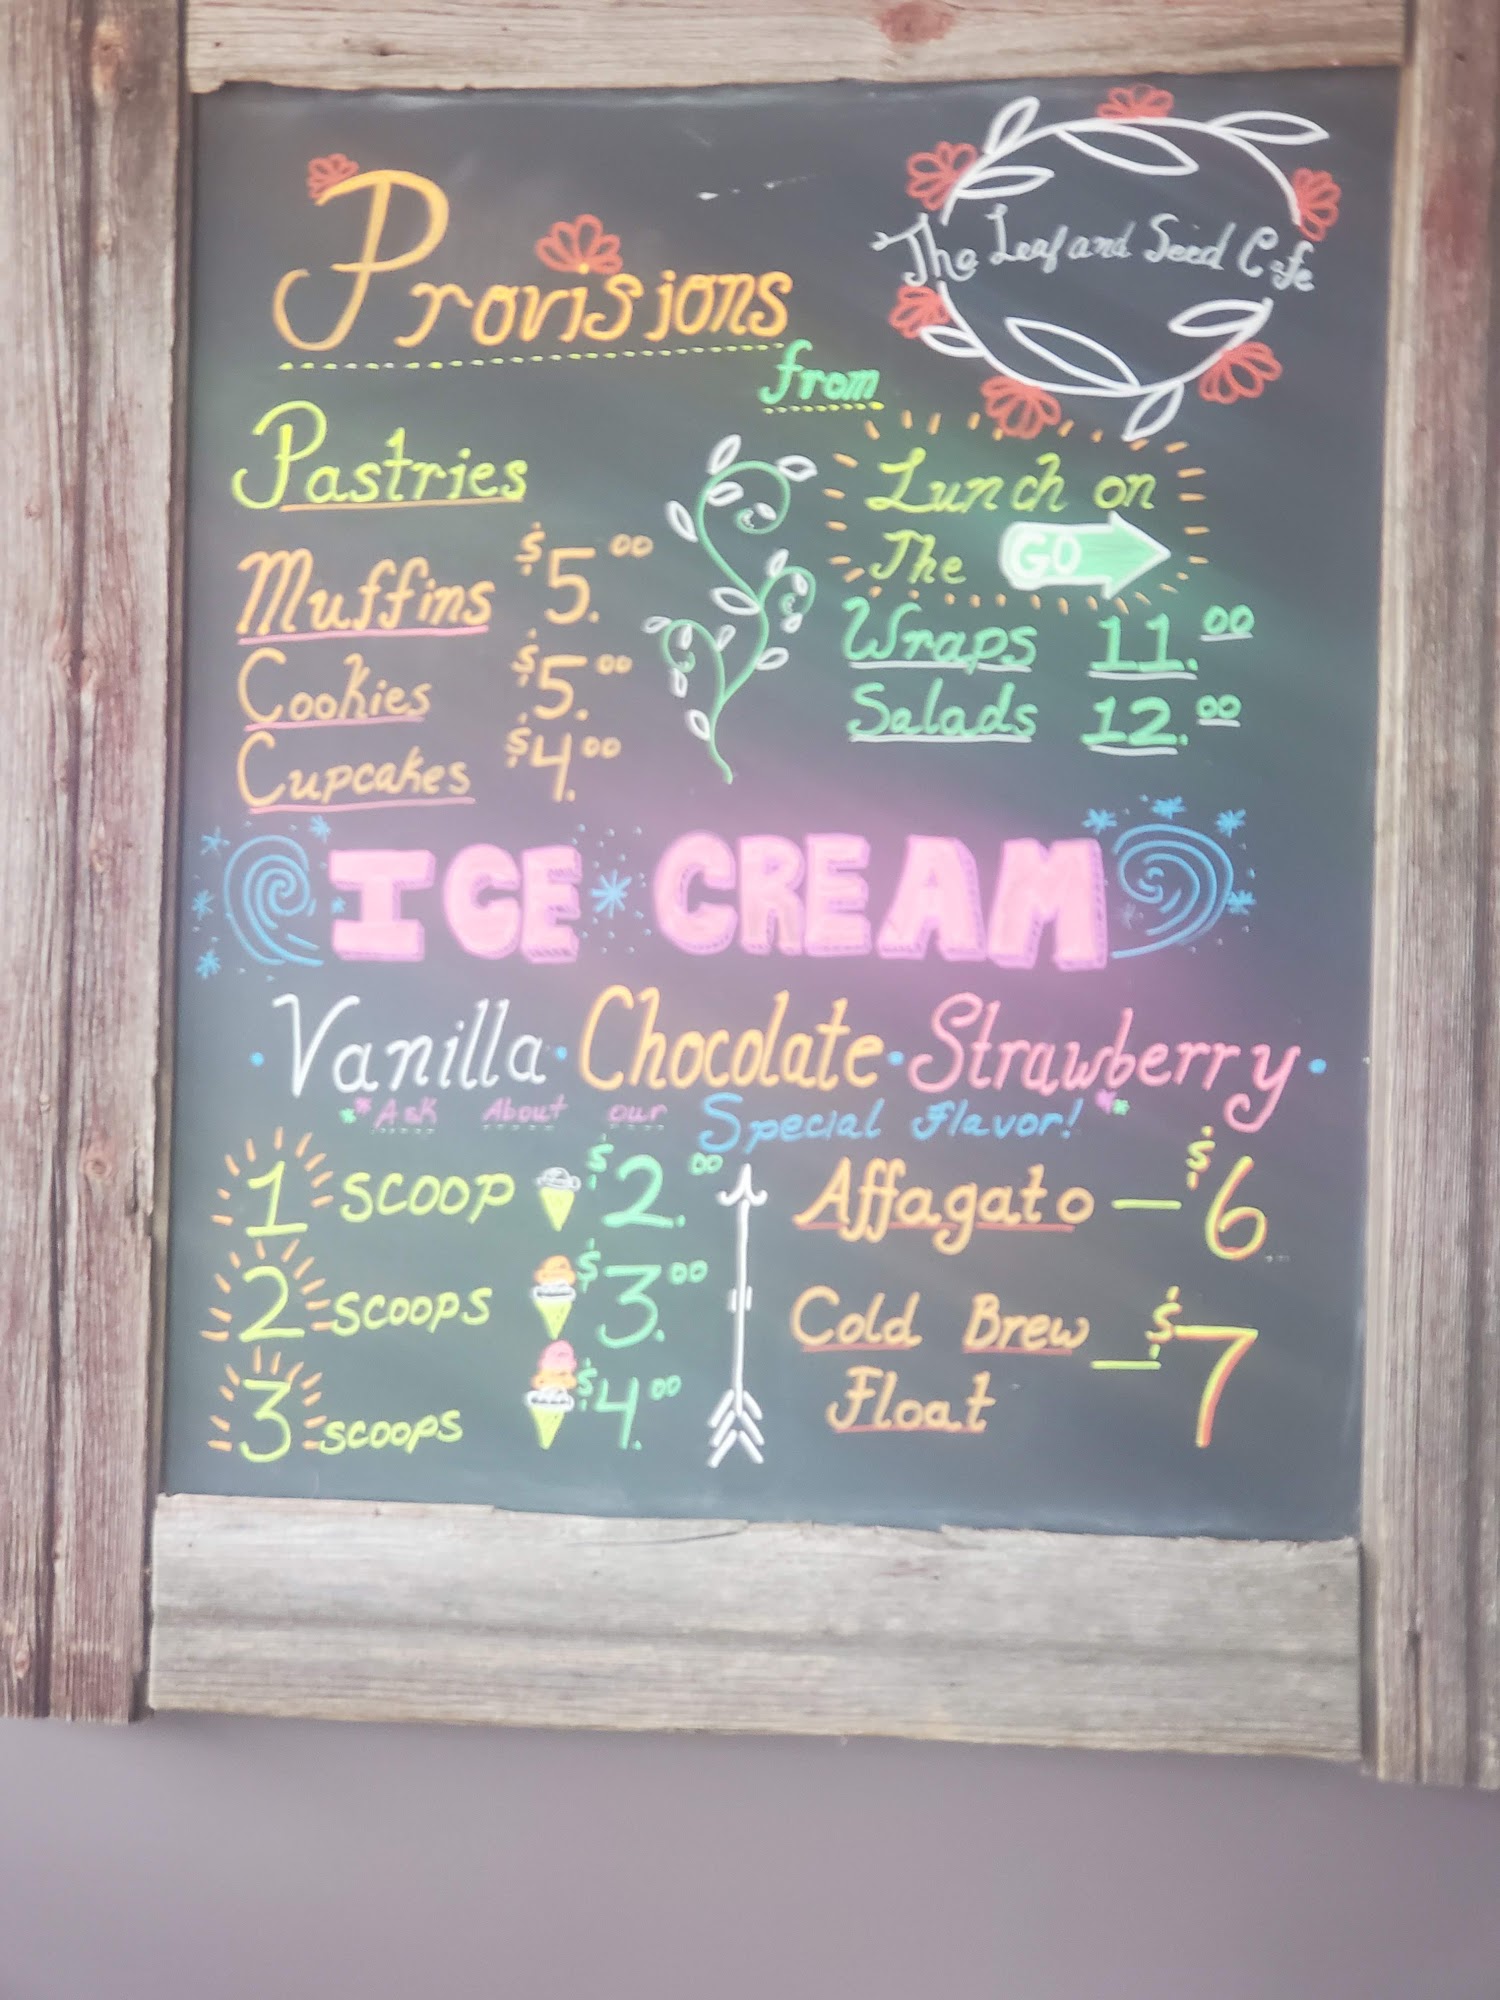 Provisions
from
The Leaf and Seed Cafe
Pastries
Muffins $5.00
Cookies $5.00
Cupcakes $4.00
Lunch on
The GO
Wraps 11.00
Salads 12.00
ICE CREAM
· Vanilla · Chocolate · Strawberry ·
*Ask About our Special Flavor!*
1 SCOOP $2.00
2 SCOOPS $3.00
3 SCOOPS $4.00
Affagato — $6
Cold Brew — $7
Float